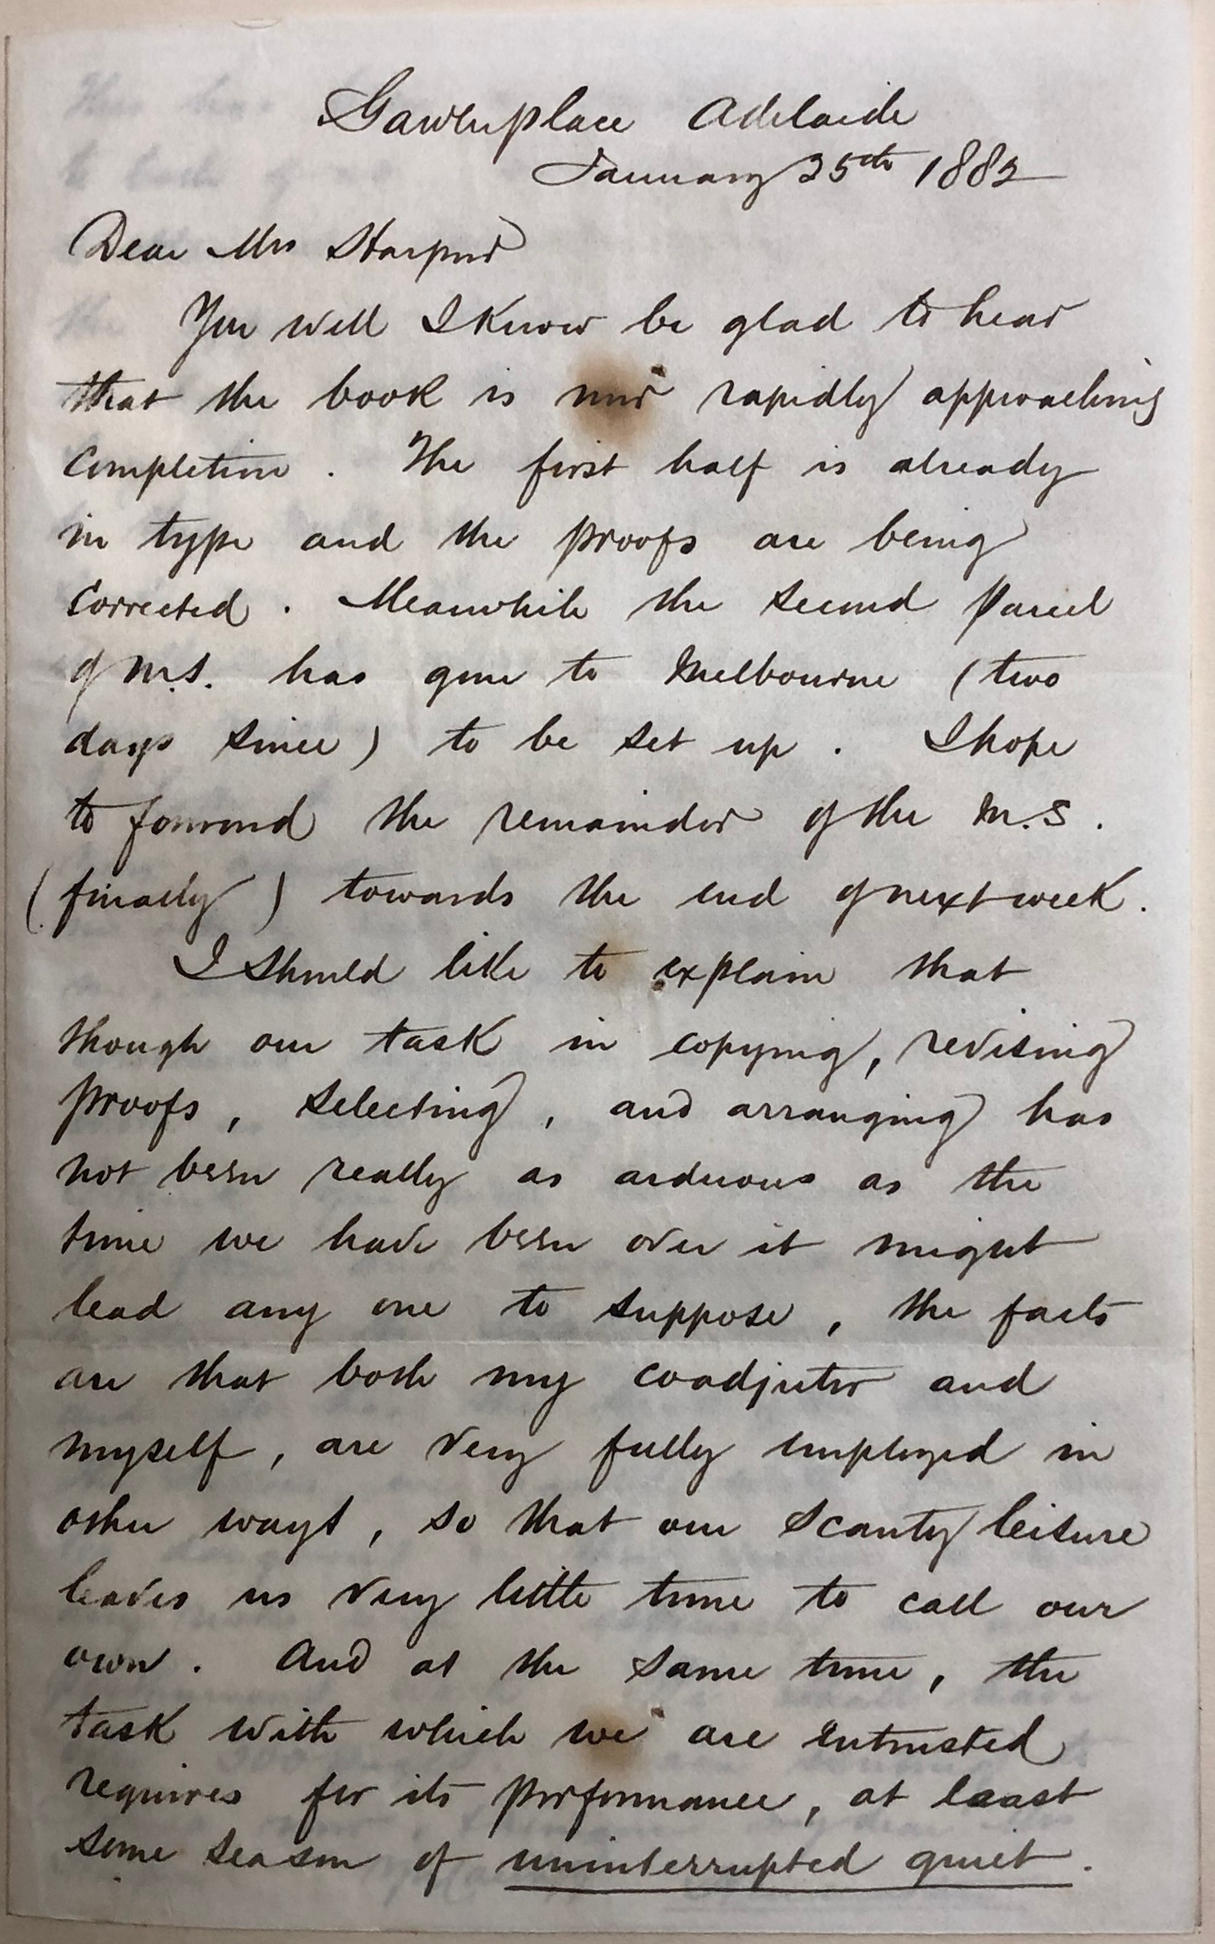 Gawlerplace Adelaide
January 25th 1882
Dear Mrs Harpur
You will I know be glad to hear
that the book is now rapidly approaching
completion. The first half is already
in type and the proofs are being
corrected. Meanwhile the second parcel
of M.S. has gone to Melbourne (two
days since) to be set up. I hope
to forward the remainder of the M.S.
(finally) towards the end of next week.
I should like to explain that
though our task in copying, revising
proofs, selecting, and arranging has
not been really as arduous as the
time we have been over it might
lead any one to suppose, the facts
are that both my coadjutor and
myself, are very fully employed in
other ways, so that our scanty leisure
leaves us very little time to call our
own. And at the same time, the
task with which we are entrusted
requires for its performance, at least
some season of uninterrupted quiet.